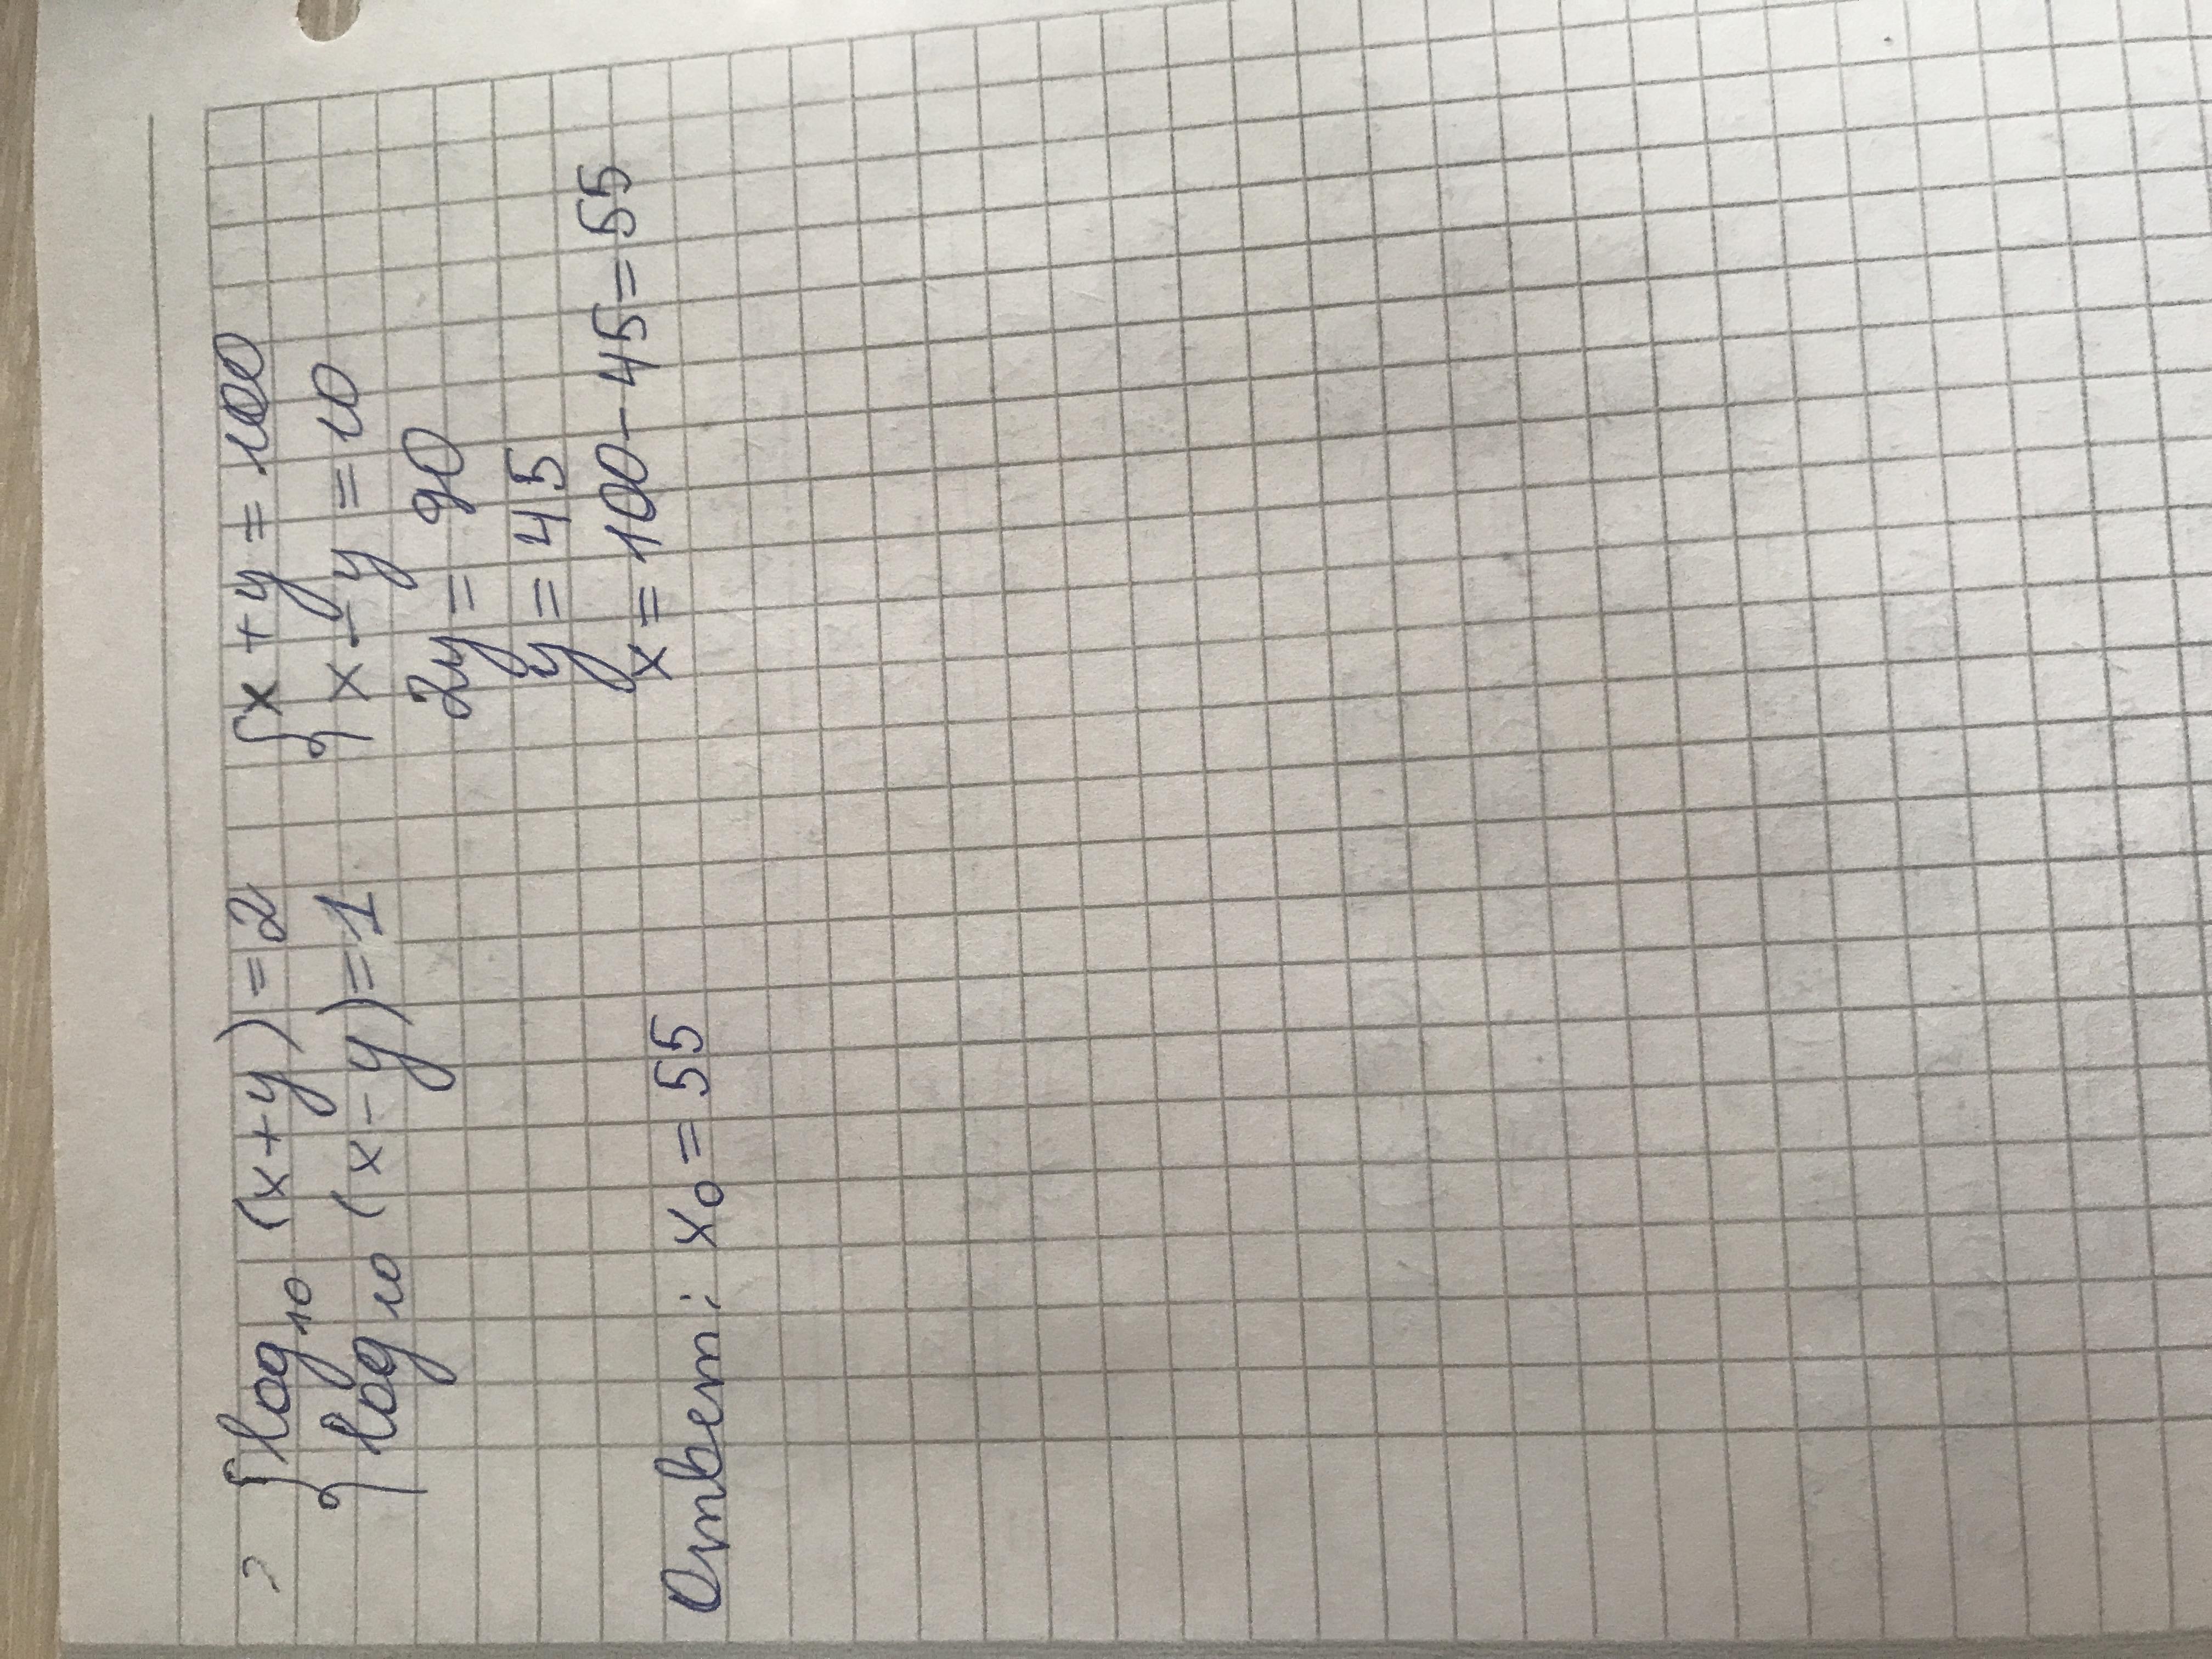 {log₁₀ (x+y)=2
{log₁₀ (x-y)=1
{x+y=100
{x-y=10
2y=90
y=45
x=100-45=55
Ответ: x₀=55